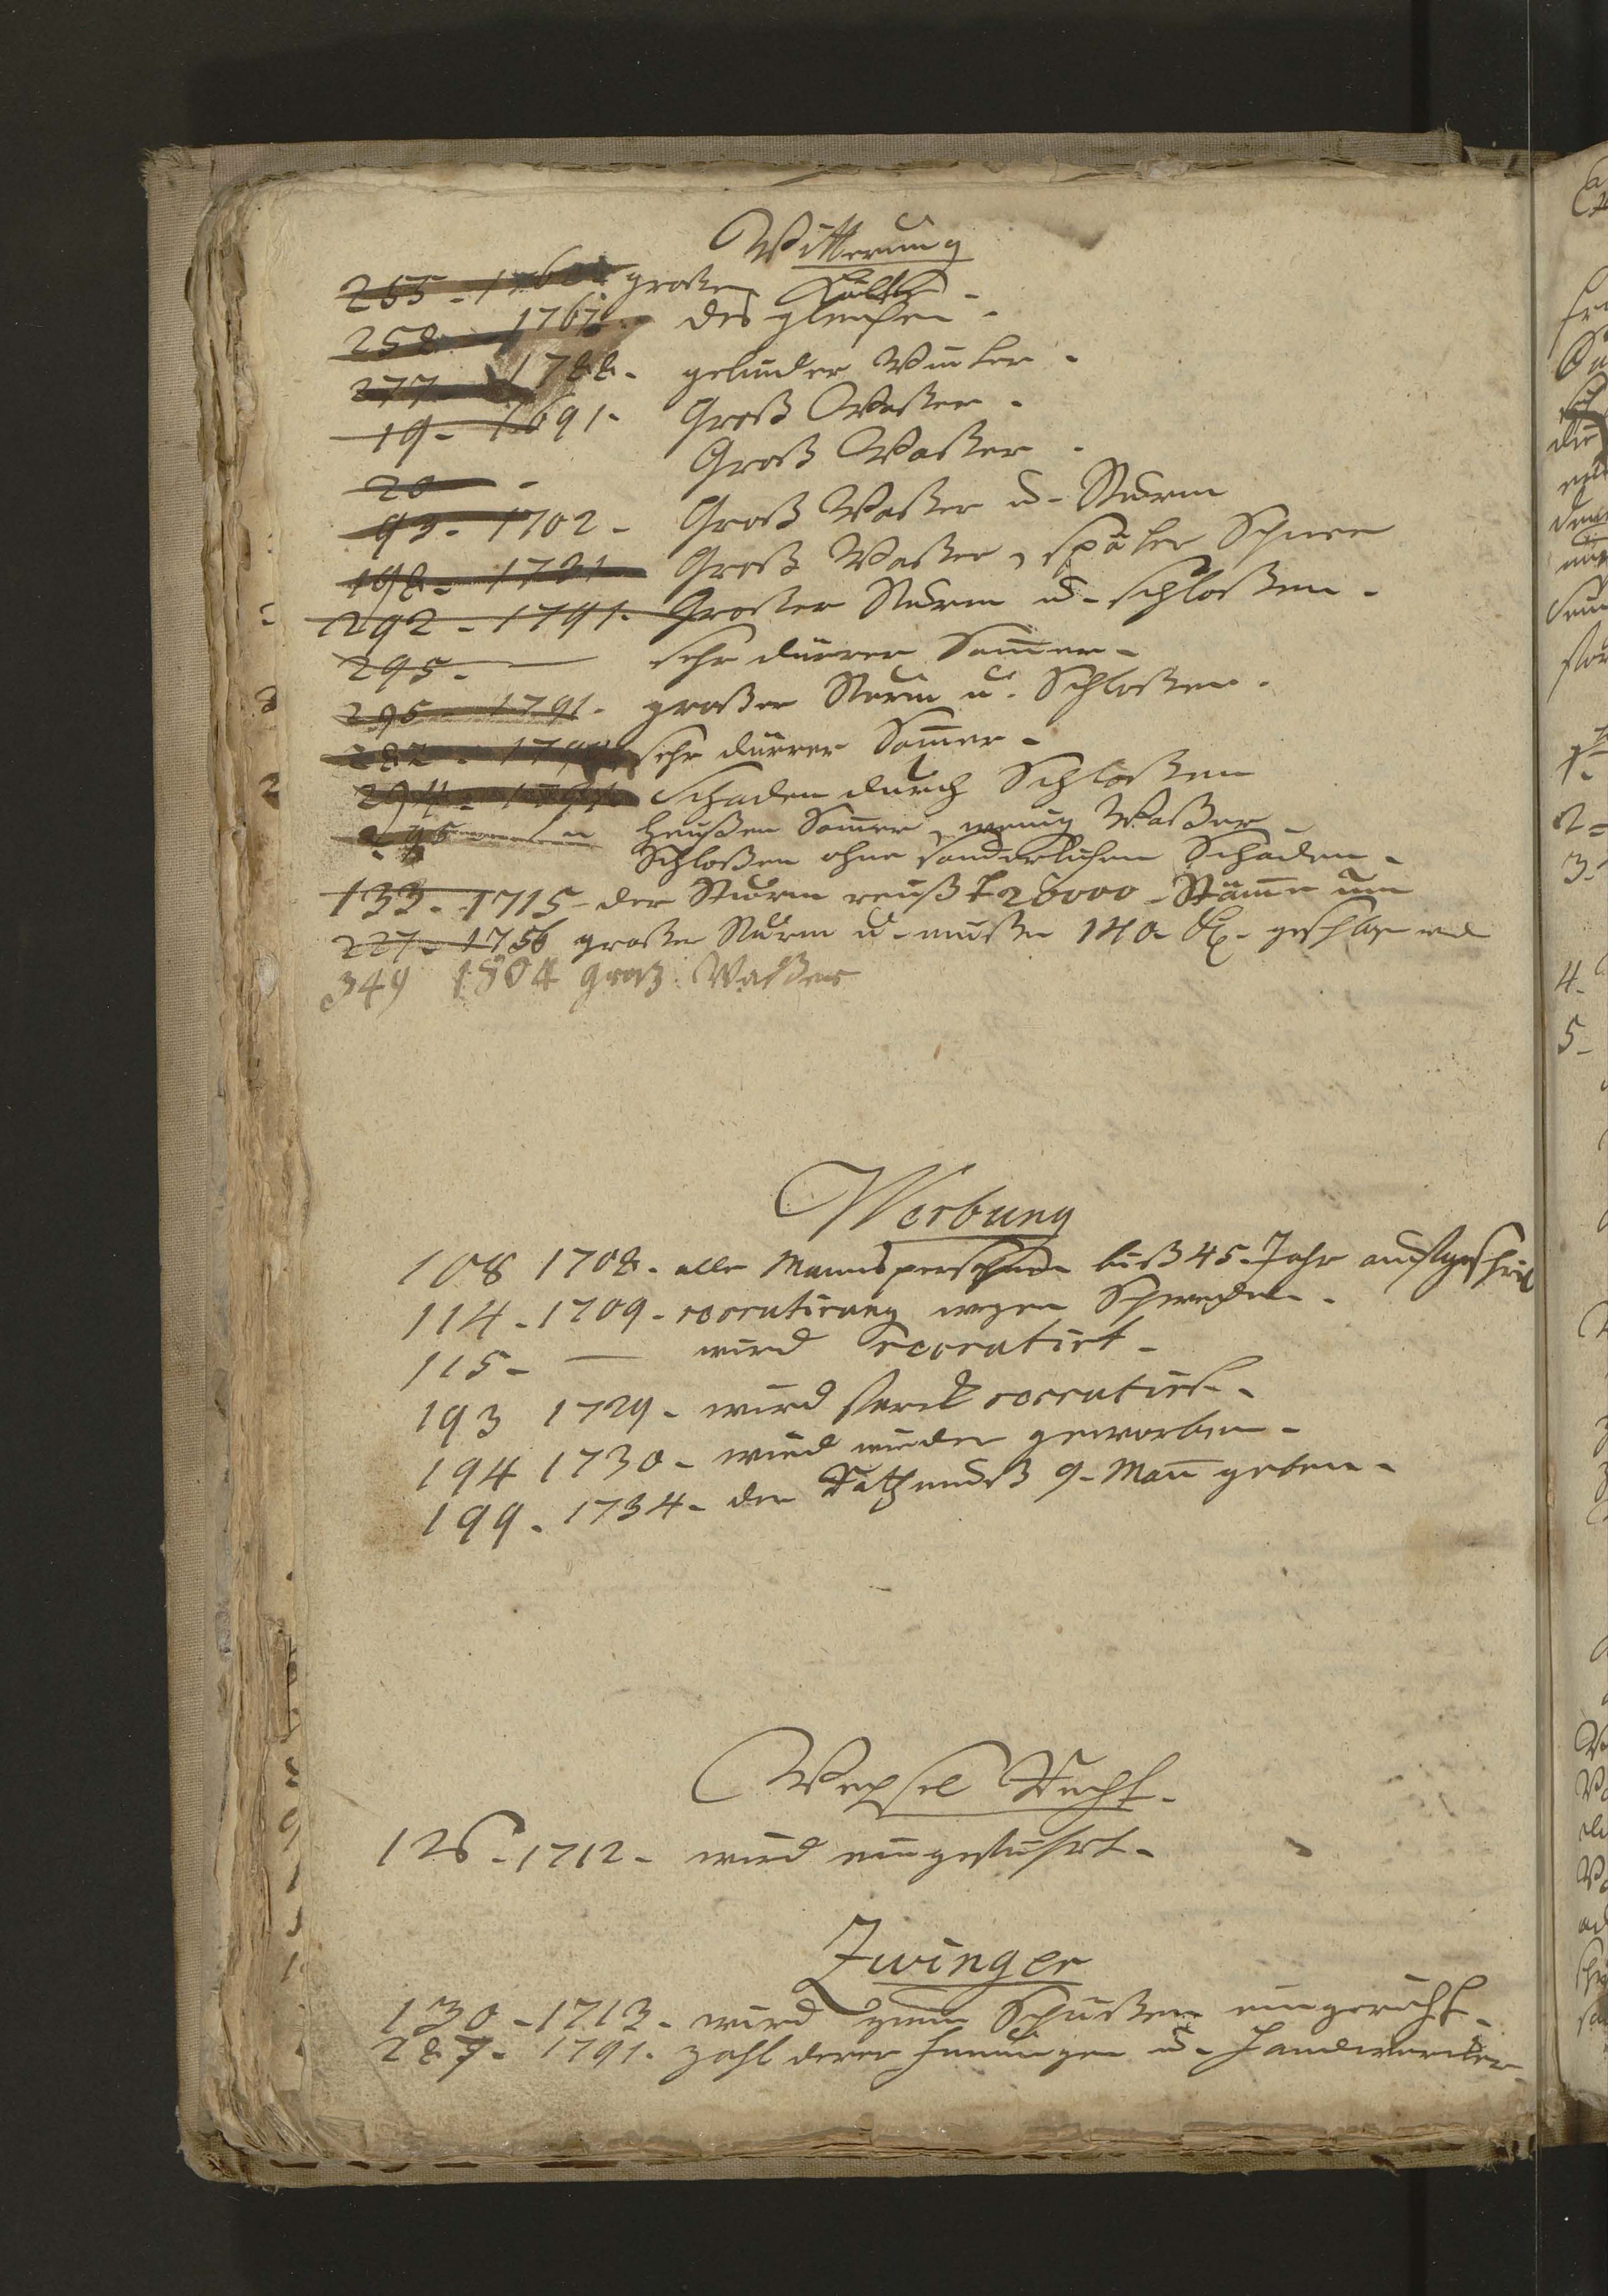 Witterung
255 - 1760 große Kälte -
258 - 1767. desgleichen -
277 - 1788. gelinder Winter -
19 - 1691. Groß Waßer -
20 - Groß Waßer -
93 - 1702 - Groß Waßer u. Sturm
198 - 1731 Groß Waßer, später Schnee
292 - 1791. Großer Sturm u. Schloßen -
295. — sehr dürrer Som̅er -
295 - 1791. großer Sturm u. Schloßen.
282 - 1790 sehr dürrer Som̅er -
294 - 1791 Schaden durch Schloßen
295 heußer Som̅er, wenig Waßer
Schloßen ohne sonderlichen Schaden -
133 - 1715 - der Sturm reuß 20000 Stäm̅e um
227 - 1756 große Sturm u. mußte 140 geschlagen
349 1804 groß Waßer
Werbung
108 1708 - alle Mannspersohnen biß 45. Jahr aufgeschrieb
114 - 1709 - recrutirung wegen Schweden -
115 - — wird recrutirt -
193 1729 - wird starck recrutirt -
194 1730 - wird wieder geworben -
199 - 1734 - der Rath muß 9. Man̅ geben -
Wechsel Recht -
126 - 1712 - wird eingeführt -
Zwinger
130 - 1713 - wird zum Schüßen eingericht -
287 - 1791. Zahl derer Innungen u. Handwercker